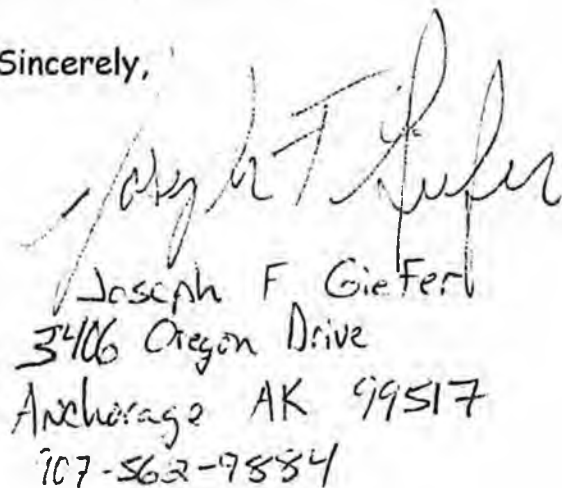 Sincerely,
Joseph F Giefer
Joseph F Giefer
3406 Oregon Drive
Anchorage AK 99517
907-562-9884